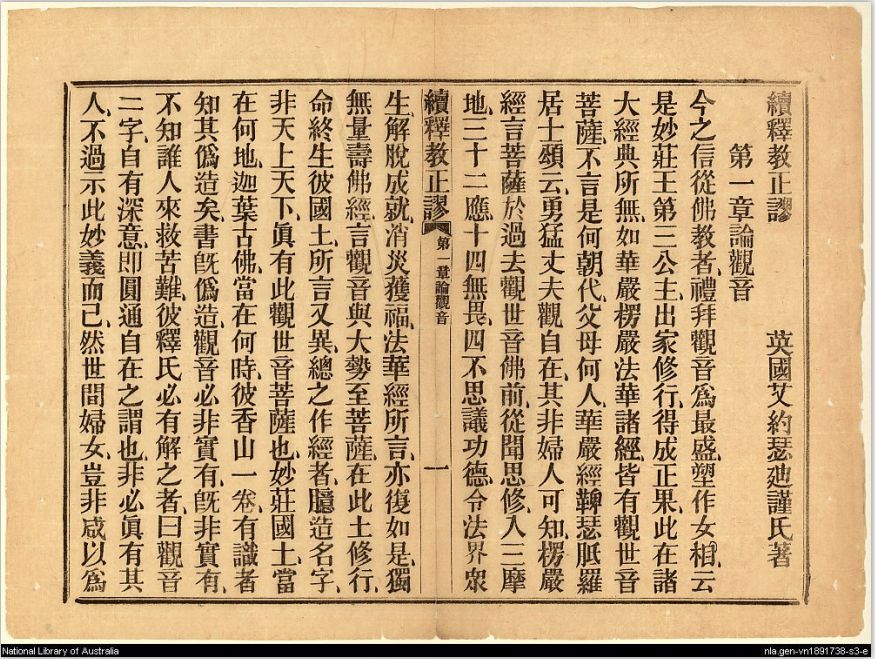 續釋教正謬
英國艾約瑟迪謹氏著
第一章論觀音
今之信從佛教者、禮拜觀音爲最盛、塑作女相、云
是妙莊王第三公主、出家修行、得成正果、此在諸
大經典所無、如華嚴楞嚴法華諸經、皆有觀世音
菩薩、不言是何朝代、父母何人、華嚴經鞞瑟胝羅
居士頌云、勇猛丈夫觀自在、其非婦人可知、楞嚴
經言菩薩於過去觀世音佛前、從聞思修、入三摩
地、三十二應、十四無畏、四不思議功德、令法界眾
續釋教正謬
第一章論觀音
一
生、解脫成就、消災獲福、法華經所言、亦復如是、獨
無量壽佛經、言觀音與大勢至菩薩、在此土修行、
命終生彼國土、所言又異、總之作經者、臆造名字、
非天上天下、眞有此觀世音菩薩也、妙莊國土、當
在何地、迦葉古佛、當在何時、彼香山一卷、有識者
知其僞造矣、書旣僞造、觀音必非實有、旣非實有、
不知誰人來救苦難、彼釋氏必有解之者、曰觀音
二字、自有深意、卽圓通自在之謂也、非必眞有其
人、不過示此妙義而已、然世間婦女、豈非咸以爲
National Library of Australia
nla.gen-vn1891738-s3-e